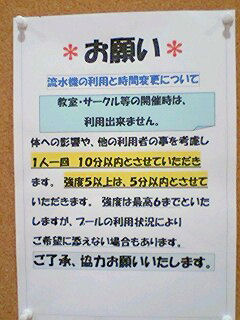 ＊お願い＊
流水機の利用と時間変更について
教室・サークル等の開催時は、
利用出来ません。
体への影響や、他の利用者の事を考慮し
1人一回　10分以内とさせていただき
ます。 強度5以上は、5分以内とさせて
いただきます。 強度は最高6までといた
しますが、プールの利用状況により
ご希望に添えない場合もあります。
ご了承、協力お願いいたします。